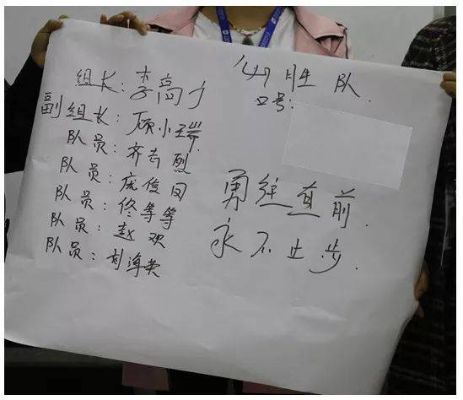 组长：李高才
副组长：顾小瑞
队员：齐志烈
队员：庞俊国
队员：佟等等
队员：赵欢
队员：刘海英
必胜队
口号：
勇往直前
永不止步.